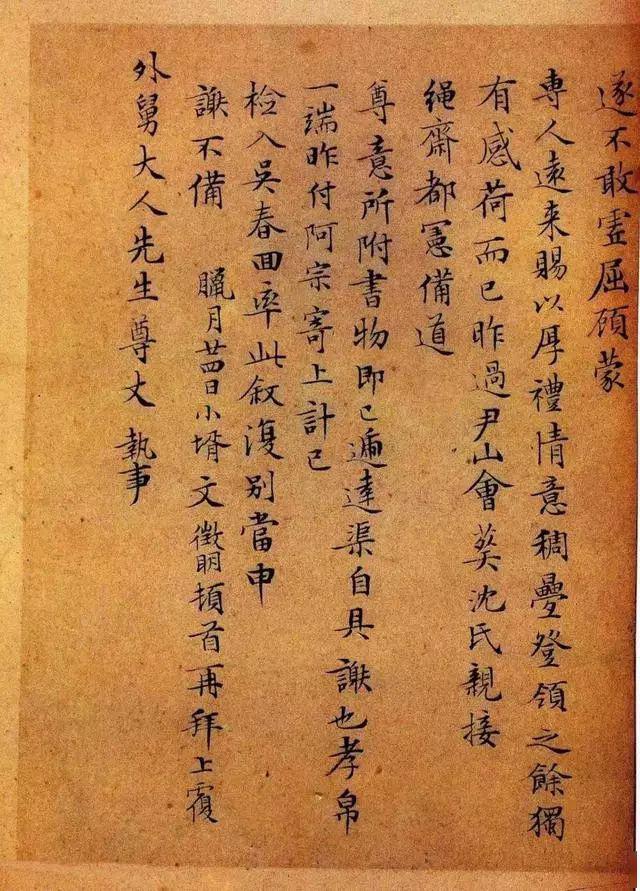 遂不敢虗屈顾蒙
専人遠来賜以厚禮情意稠疊登領之餘獨
有感荷而已昨過尹山會葬沈氏親接
繩齋都憲備道
尊意所附書物即已逓達渠自具謝也孝帛
一端昨付阿宗寄上計已
檢入吳春回率此敘復别當申
謝不備 臘月廿四日小壻文徵明頓首再拜上覆
外舅大人先生尊丈 執事